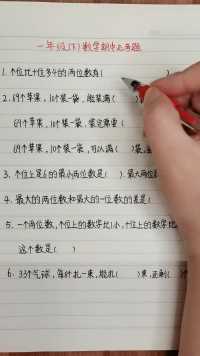 一年级(下)数学期中必考题
1. 个位比十位多4的两位数有(
2. 69个苹果,10个装一袋,能装满( )
69个苹果,10个装一袋,装完需要(
69个苹果,10个装一袋,可以满( )袋,
3. 个位上是6的最小两位数是( ),最大两位数
4. 最大的两位数和最大的一位数的差是(
5. 一个两位数,个位上的数字比1小,十位上的数字比
这个数是( )
6. 33个气球,每
扎一束,能扎( )束,还剩(